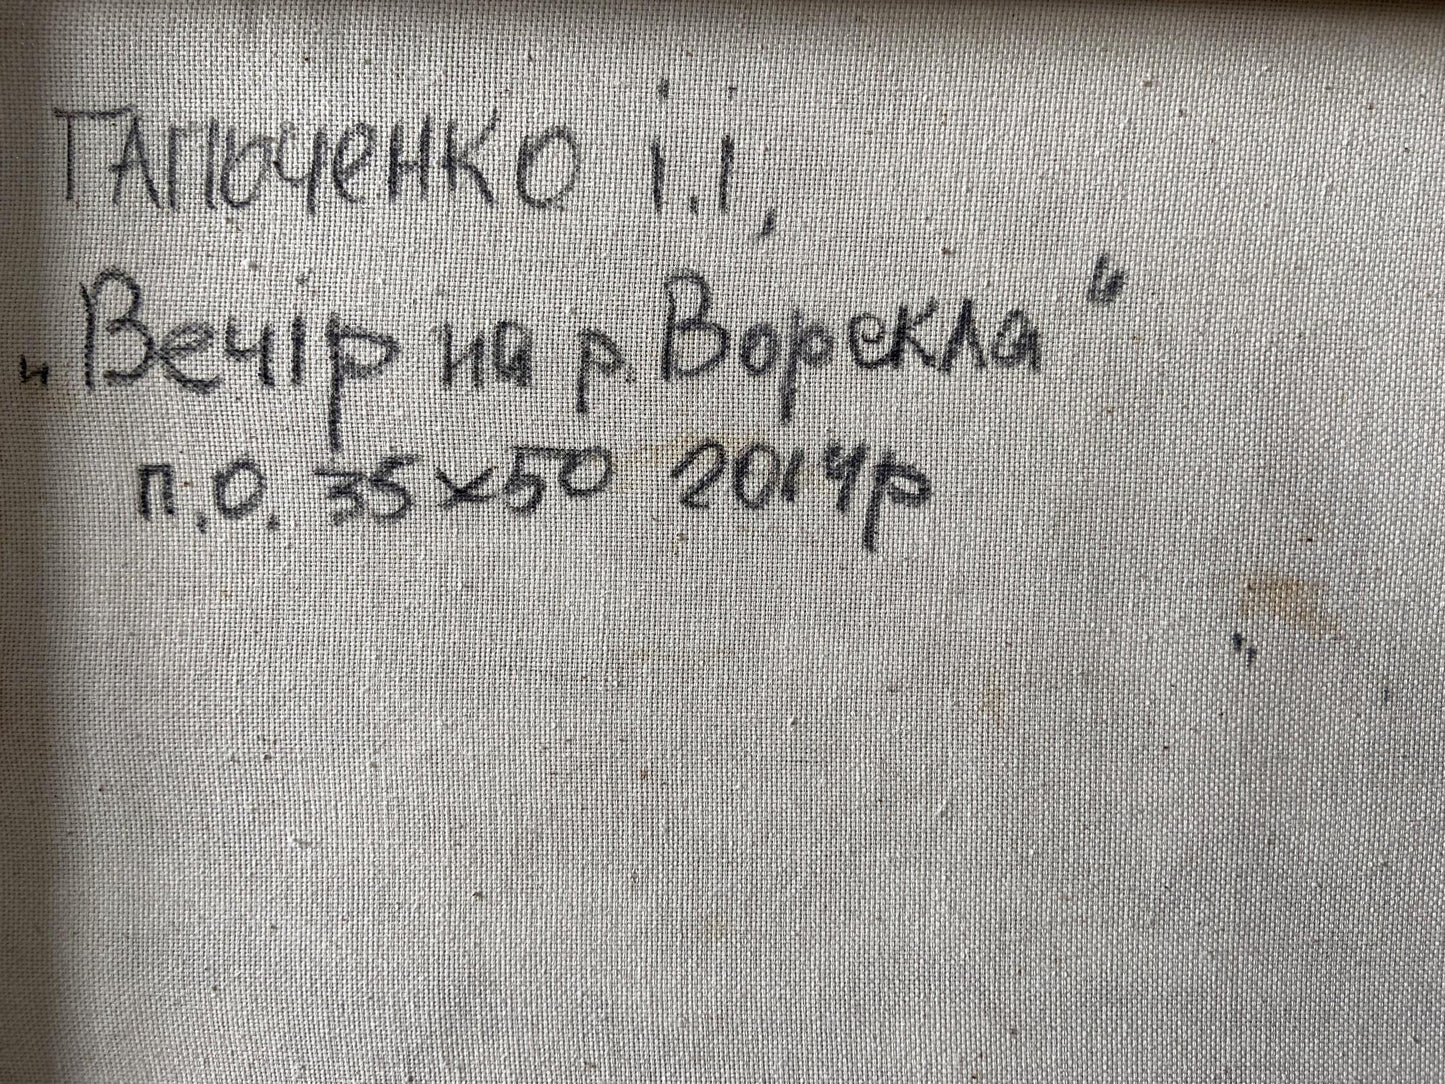 ГАПОЧЕНКО І.І,
„Вечір на р. Ворскла“
п.о. 35х50 2014р